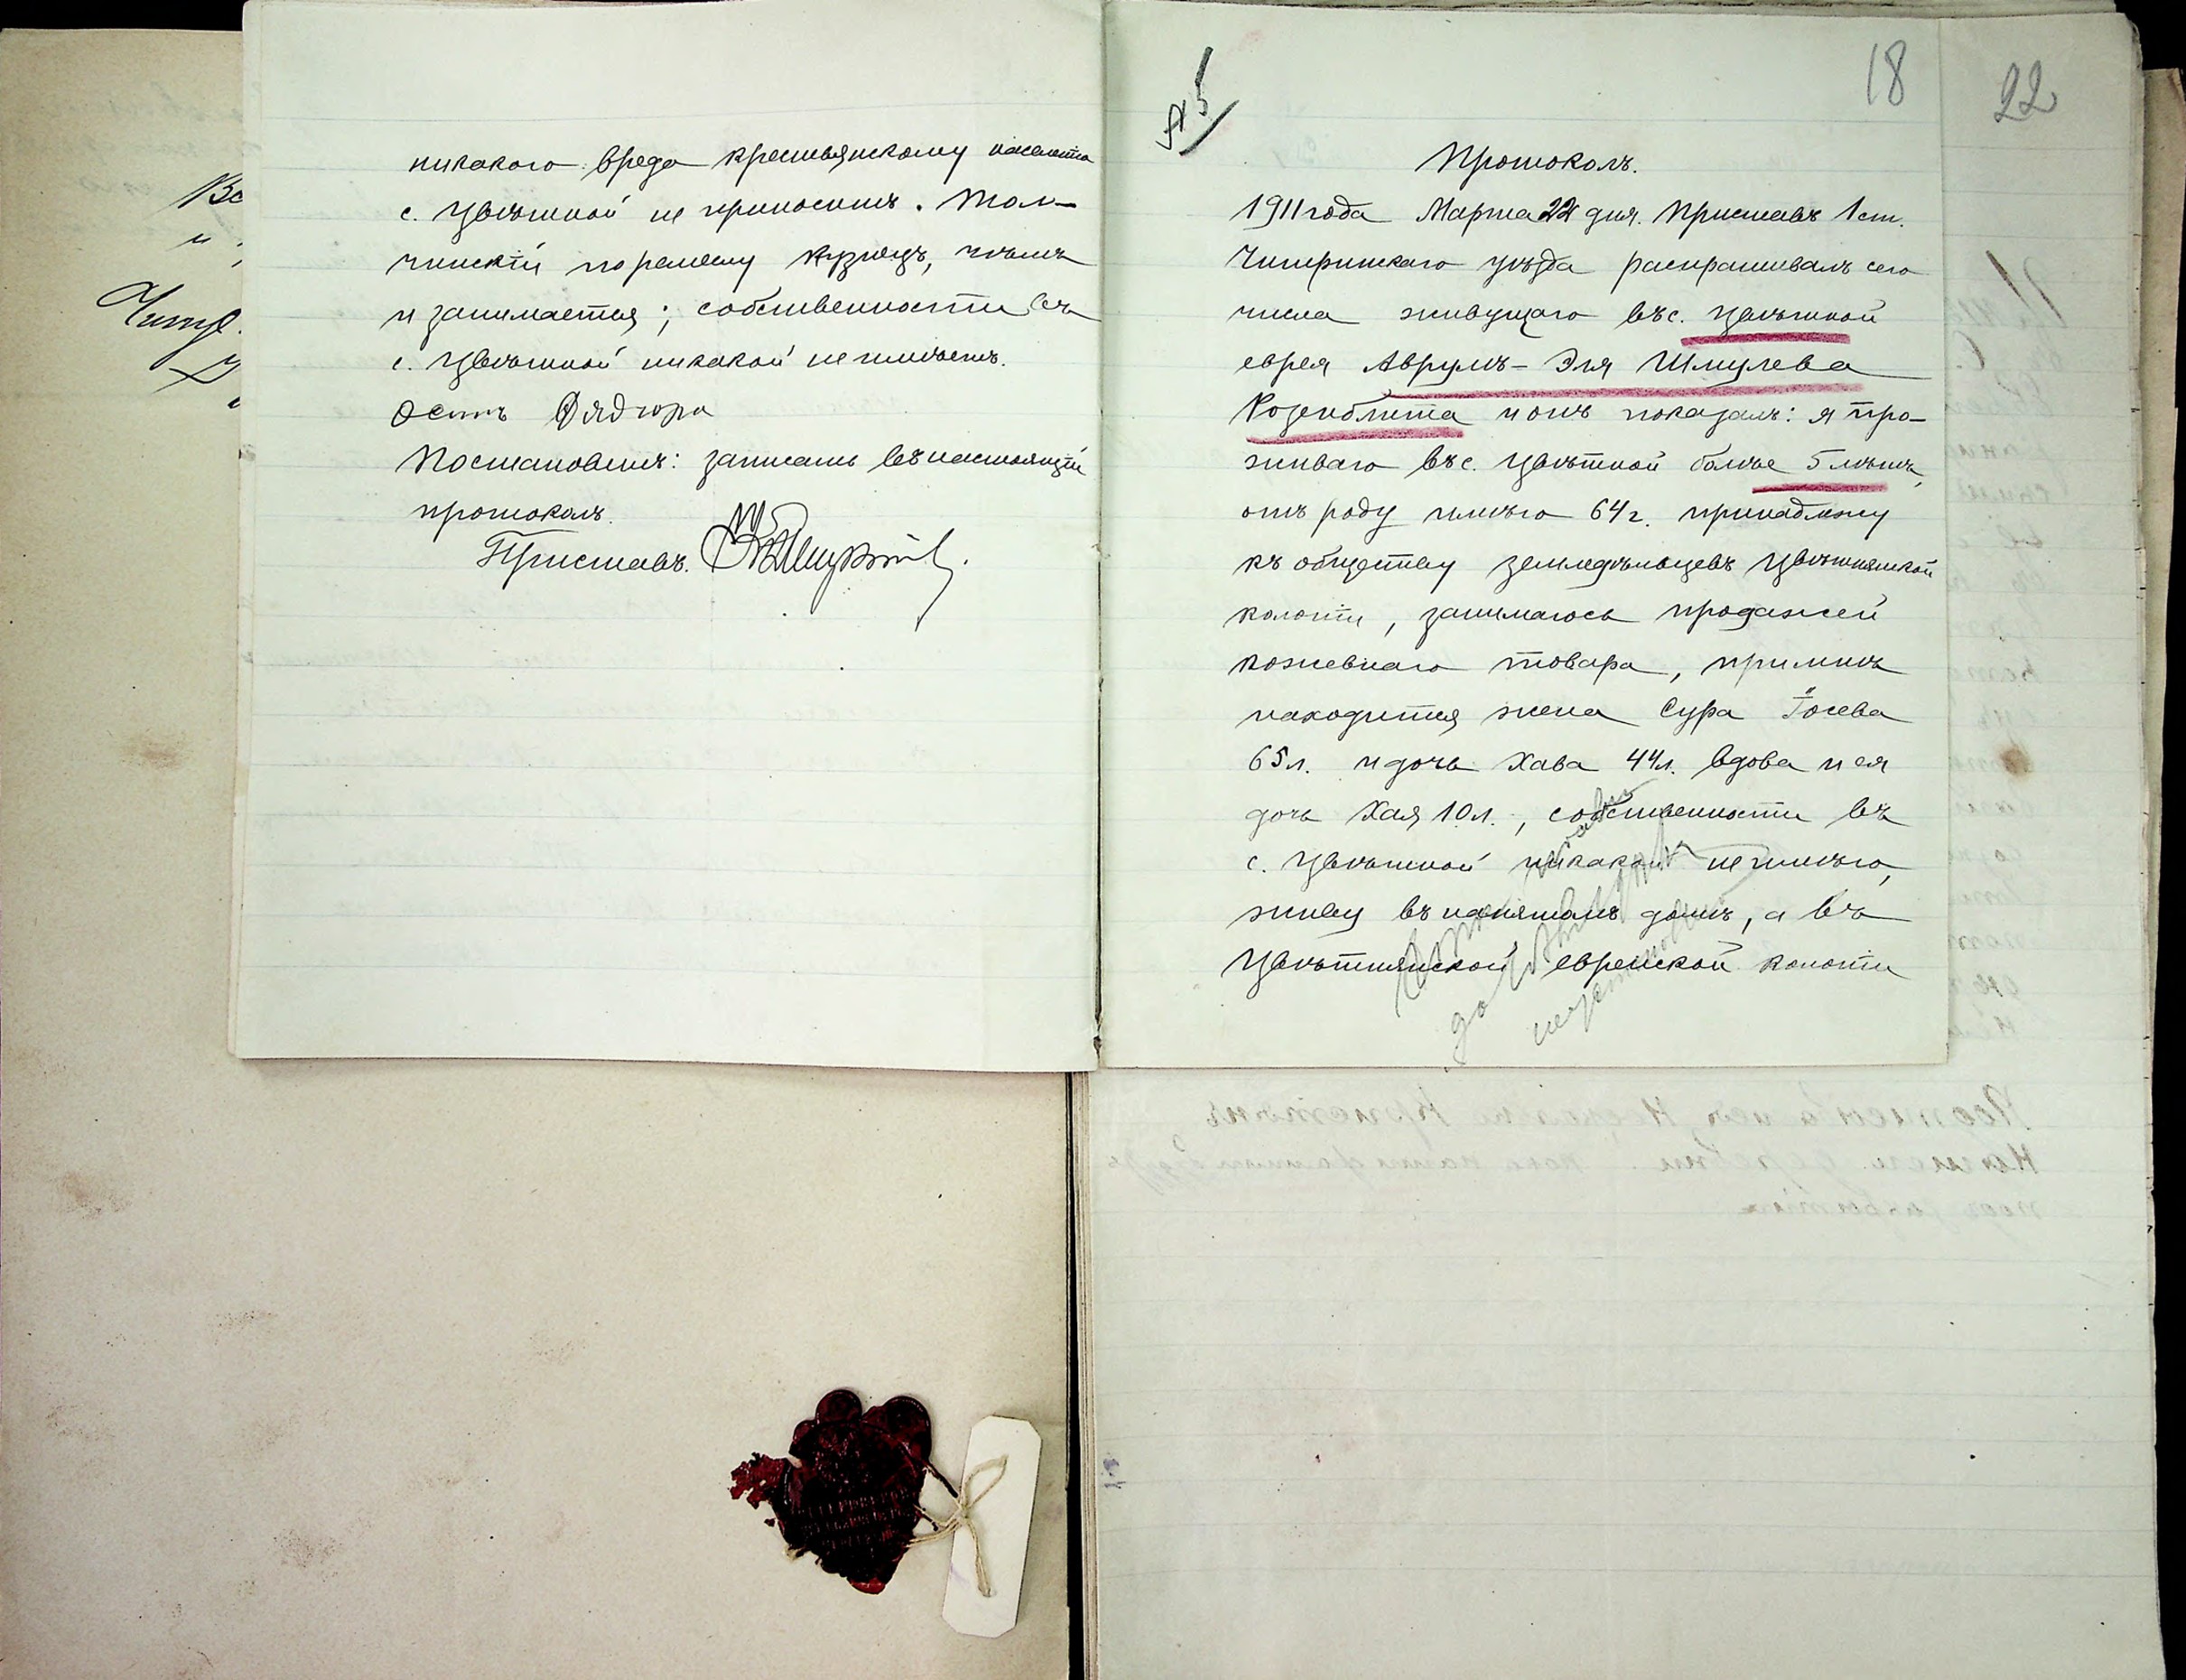 никакого вреда крестьянскому
с. Цвѣтной не приноситъ. Тол-
чинскій по ремеслу кузнецъ, чѣмъ
и занимается; собственности въ
с. Цвѣтной никакой не имѣетъ.
Постановилъ: записать въ настоящій
протоколъ.
Приставъ.
№ 5
18
22
Протоколъ.
1911 года Марта 22 дня. Приставъ 1 ст.
Чигиринскаго уѣзда распрашивалъ сего
числа живущаго въ с. Цвѣтной
еврея Аврумъ-Эля Шмулева
Розенблита и онъ показалъ: я про-
живаю въ с. Цвѣтной болѣе 5 лѣтъ,
отъ роду имѣю 64 г. принадлежу
къ обществу земледѣльцевъ Цвѣтнянской
колоніи, занимаюсь продажей
кожевнаго товара, при мнѣ
находится жена Сура Іосева
65 л. и дочь Хава 44 л. вдова и ея
дочь Хая 10 л., собственности въ
с. Цвѣтной никакой не имѣю,
живу въ нанятомъ домѣ, а въ
Цвѣтнянской еврейской колоніи